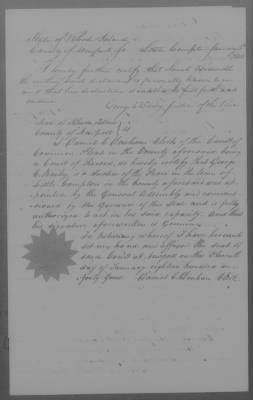 State of Rhode Island
County of Newport ss Little Compton January
I hereby further certify that
the within is personally known to me
and that his declaration is entitled to full faith and
credence.
George Justice of the Peace
State of Rhode Island
County of Newport ss
I Daniel C Denham Clerk of the Court of
Common Pleas in the County aforesaid being
a Court of Record, do hereby certify that George
is a Justice of the Peace in the town of
Little Compton in the County aforesaid and ap-
pointed by the General Assembly and commis-
sioned by the Governor of this State and is fully
authorized to act in his said capacity. And that
his signature aforewritten is Genuine.
In testimony whereof I have hereunto
set my hand and affixed the seal of
said Court at Newport on this Eleventh
day of January eighteen hundred and
forty four Daniel C Denham Clerk